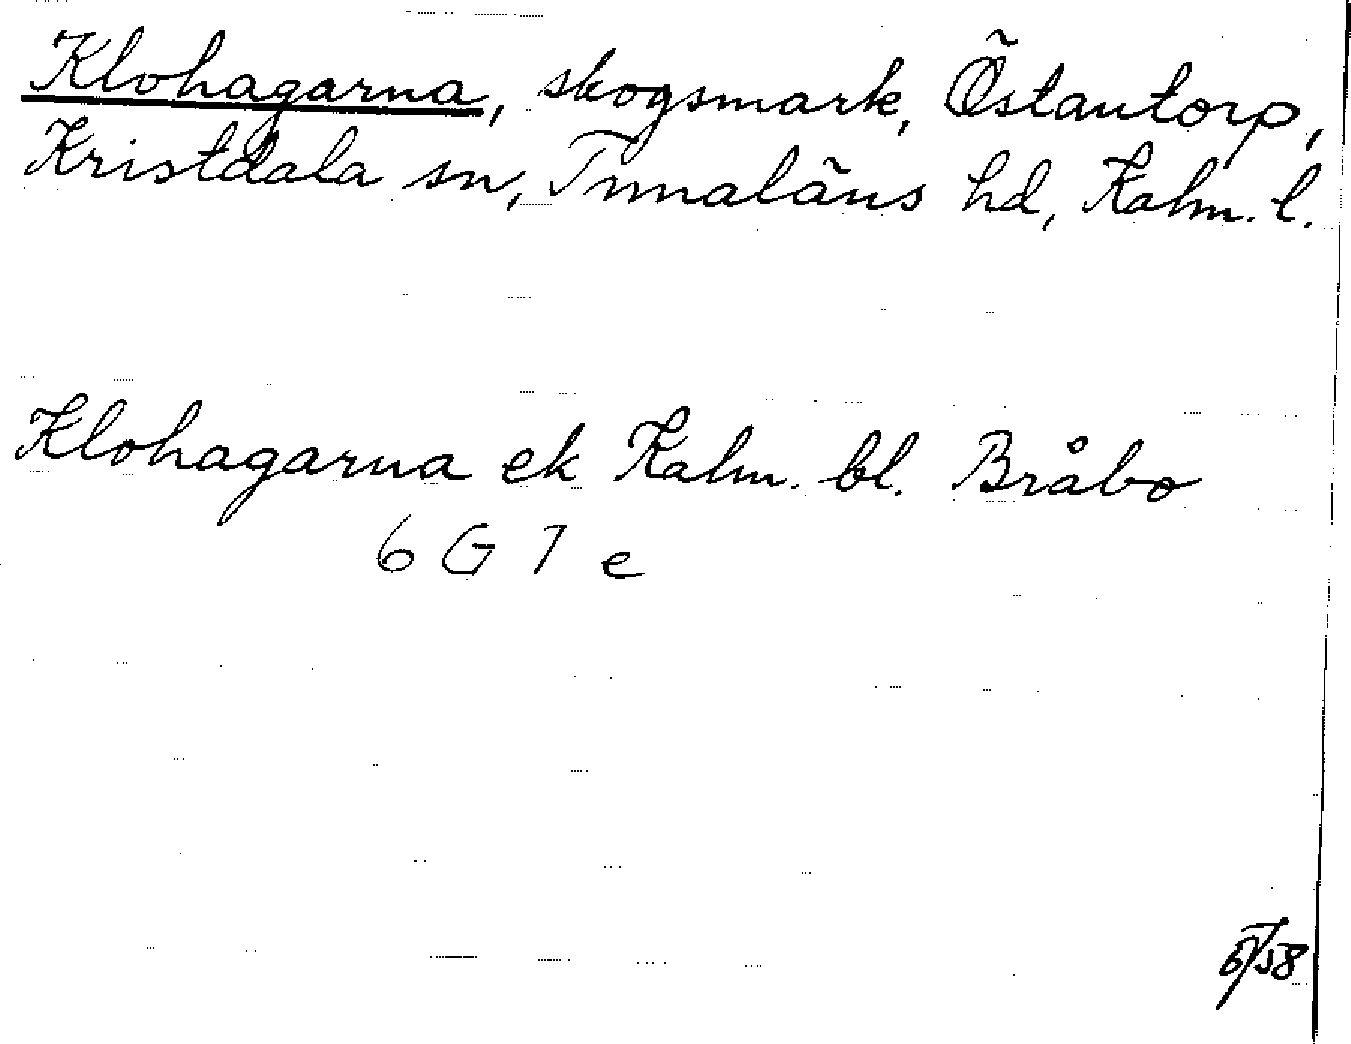 Klohagarna, skogsmark, Östantorp,
Kristdala sn, Tunaläns hd, Kalm. l.
Klohagarna ek Kalm. bl. Bråbo
6 G 7 e